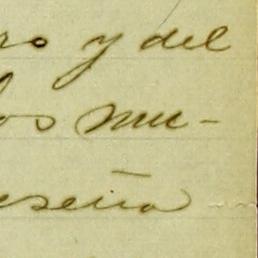 ro y del
os mu-
eseña